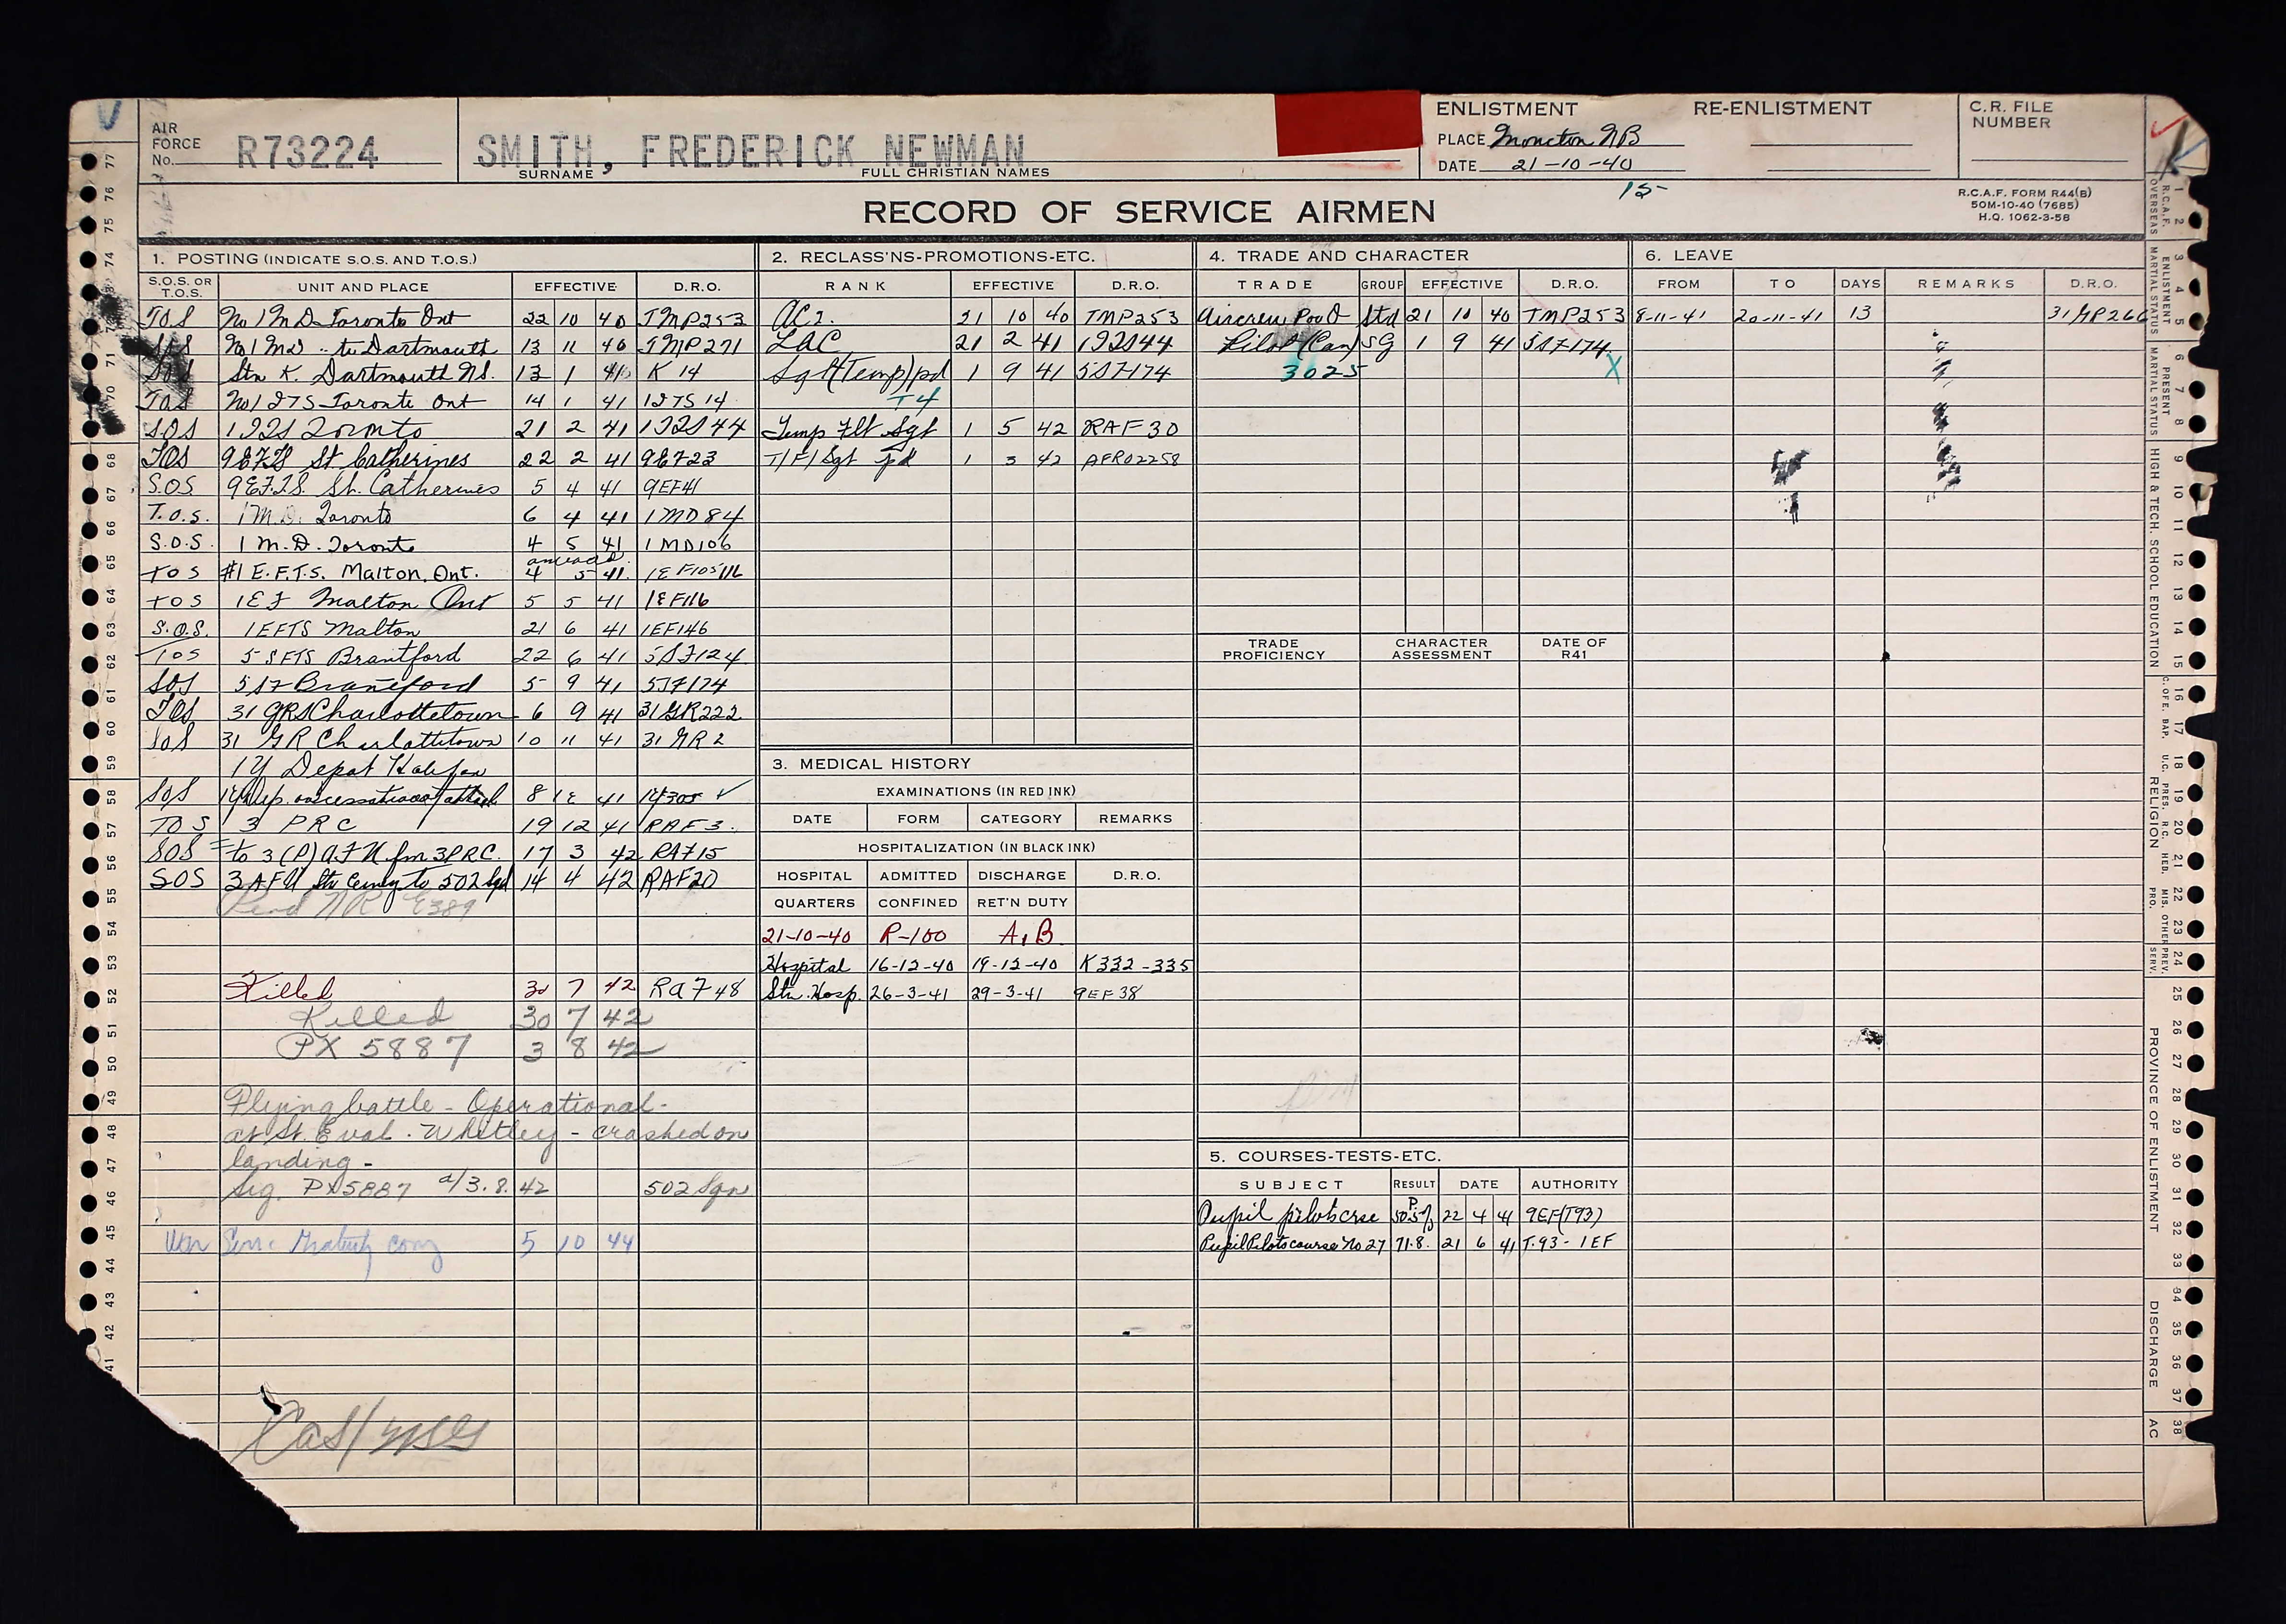 AIR FORCE No. R73224
SMITH, FREDERICK NEWMAN
SURNAME FULL CHRISTIAN NAMES
ENLISTMENT RE-ENLISTMENT
PLACE Moncton NB
DATE 21-10-40
15
C.R. FILE NUMBER
R.C.A.F. FORM R44(B)
50M-10-40 (7685)
H.Q. 1062-3-58
RECORD OF SERVICE AIRMEN
1. POSTING (INDICATE S.O.S. AND T.O.S.)
S.O.S. OR T.O.S. UNIT AND PLACE EFFECTIVE D.R.O.
TOS No 1 M D Toronto Ont 22 10 40 TMP253
No 1 MD to Dartmouth 13 11 40 TMP271
SOS Stn K. Dartmouth NS. 13 1 41 K 14
TOS No 1 ITS Toronto Ont 14 1 41 1ITS 14
SOS 1 ITS Toronto 21 2 41 1ITS44
TOS 9EFTS St Catherines 22 2 41 9EF23
S.O.S 9EFTS. St. Catherines 5 4 41 9EF41
T.O.S. 1 M.D. Toronto 6 4 41 1MD84
S.O.S. 1 M.D. Toronto 4 5 41 1MD106
TOS #1 E.F.T.S. Malton, Ont. 4 5 41 1EF105/116
TOS 1EF Malton Ont 5 5 41 1EF116
S.O.S. 1EFTS Malton 21 6 41 1EF146
TOS 5 SFTS Brantford 22 6 41 5SF124
SOS 5 SF Brantford 5 9 41 5SF174
TOS 31 GRS Charlottetown 6 9 41 31GR222
SOS 31 GR Charlottetown 10 11 41 31 GR 2
1Y Depot Halifax
SOS 1Y Dep. on cessation of attach 8 12 41 1Y305
TOS 3 PRC 19 12 41 RAF3.
SOS to 3 (P) AFU fm 3PRC. 17 3 42 RAF15
SOS 3 AFU to 502 Sqd 14 4 42 RAF20
Killed 30 7 42 RAF48
Killed 30 7 42
PX 5887 3 8 42
Flying battle - Operational -
at St. Eval. Whitley - crashed on
landing -
Sig. PX5887 d/3.8.42 502 Sqn
5 10 44
2. RECLASS'NS-PROMOTIONS-ETC.
RANK EFFECTIVE D.R.O.
AC2. 21 10 40 TMP253
LAC 21 2 41 1ITS44
Sgt (Temp) pd 1 9 41 5SF174
T4
Temp Flt Sgt 1 5 42 RAF30
T/F/Sgt pd 1 3 42 AFRO2258
3. MEDICAL HISTORY
EXAMINATIONS (IN RED INK)
DATE FORM CATEGORY REMARKS
HOSPITALIZATION (IN BLACK INK)
HOSPITAL ADMITTED DISCHARGE D.R.O.
QUARTERS CONFINED RET'N DUTY
21-10-40 R-100 A, B
Hospital 16-12-40 19-12-40 K332-335
Stn. Hosp. 26-3-41 29-3-41 9EF38
4. TRADE AND CHARACTER
TRADE GROUP EFFECTIVE D.R.O.
Aircrew P or O Std 21 10 40 TMP253
Pilot (Can) SG 1 9 41 5SF174
3025 X
TRADE PROFICIENCY CHARACTER ASSESSMENT DATE OF R41
5. COURSES-TESTS-ETC.
SUBJECT RESULT DATE AUTHORITY
Pupil pilots crse 22 4 41 9EF(T93)
Pupil Pilots course No 27 71.8. 21 6 41 T.93-1EF
6. LEAVE
FROM TO DAYS REMARKS D.R.O.
8-11-41 20-11-41 13
77
76
75
74
71
70
68
67
66
65
64
63
62
61
60
59
58
57
56
55
54
53
52
51
50
49
48
47
46
45
44
43
42
41
R.C.A.F. OVERSEAS 1 2
ENLISTMENT MARTIAL STATUS 3 4 5
PRESENT MARTIAL STATUS 6 7 8
HIGH & TECH. SCHOOL EDUCATION 9 10 11 12 13 14 15
RELIGION
C. OF E. 16
BAP. 17
U.C. 18
PRES. 19
R.C. 20
HEB. 21
MIS. PRO. 22
OTHER 23
PREV. SERV. 24
PROVINCE OF ENLISTMENT 25 26 27 28 29 30 31 32 33
DISCHARGE 34 35 36 37
AC 38